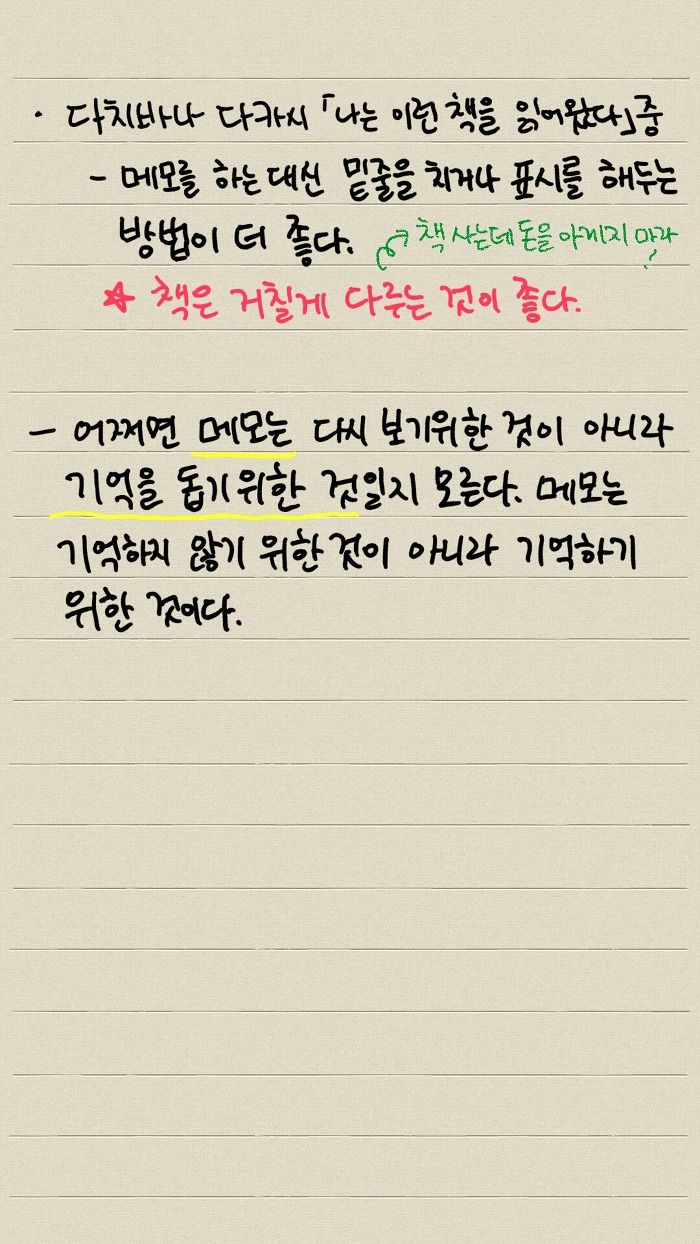 · 다치바나 다카시 「나는 이런 책을 읽어왔다」 중
- 메모를 하는 대신 밑줄을 치거나 표시를 해두는
방법이 더 좋다.
책 사는데 돈을 아끼지 마라
☆ 책은 거칠게 다루는 것이 좋다.
- 어쩌면 메모는 다시 보기위한 것이 아니라
기억을 돕기 위한 것일지 모른다. 메모는
기억하지 않기 위한 것이 아니라 기억하기
위한 것이다.